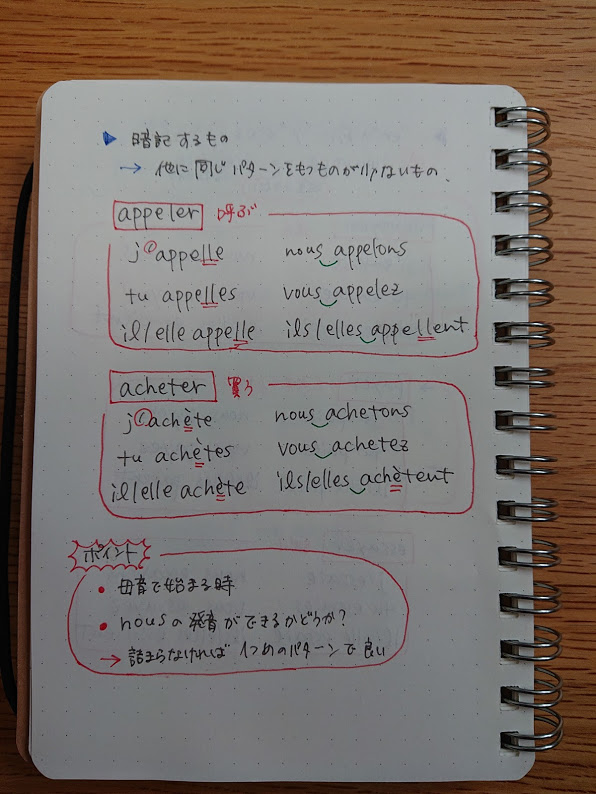 ▶ 暗記するもの
→ 他に同じパターンをもつものが少ないもの.
appeler 呼ぶ
j'appelle nous appelons
tu appelles vous appelez
il/elle appelle ils/elles appellent
acheter 買う
j'achète nous achetons
tu achètes vous achetez
il/elle achète ils/elles achètent
ポイント
• 母音で始まる時
• nousの発音ができるかどうか?
→ 詰まらなければ 1つめのパターンで良い